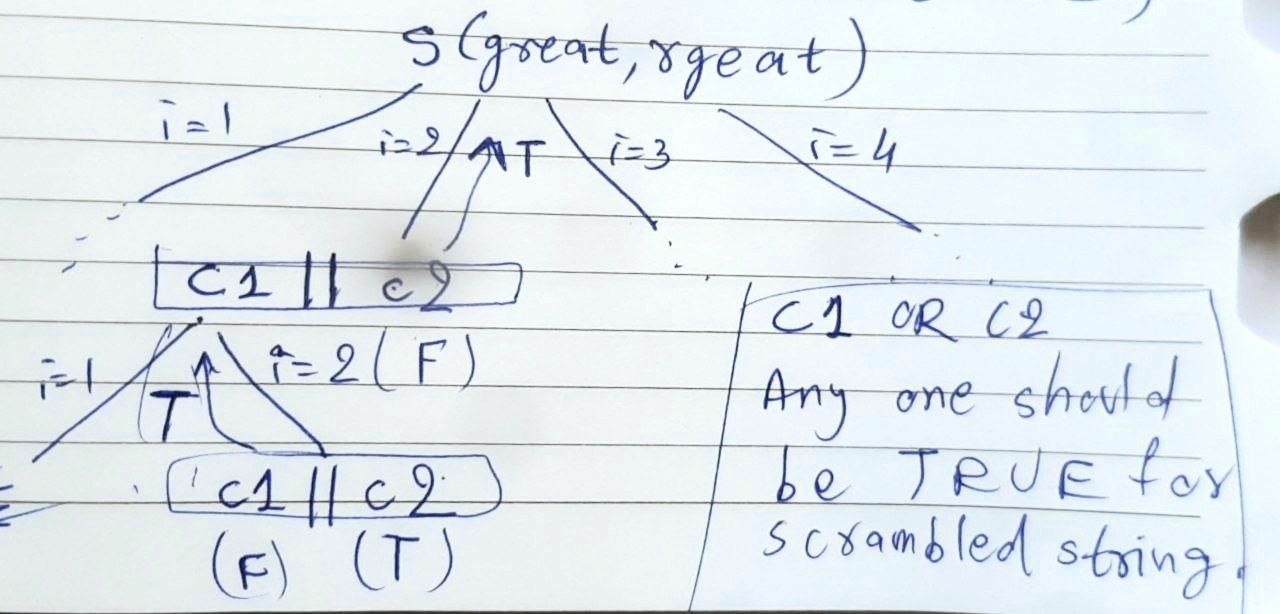 S(great, rgeat)
i=1
i=2
T
i=3
i=4
C1 || C2
i=1
T
i=2 (F)
C1 || C2
(F) (T)
C1 OR C2
Any one should
be TRUE for
scrambled string.